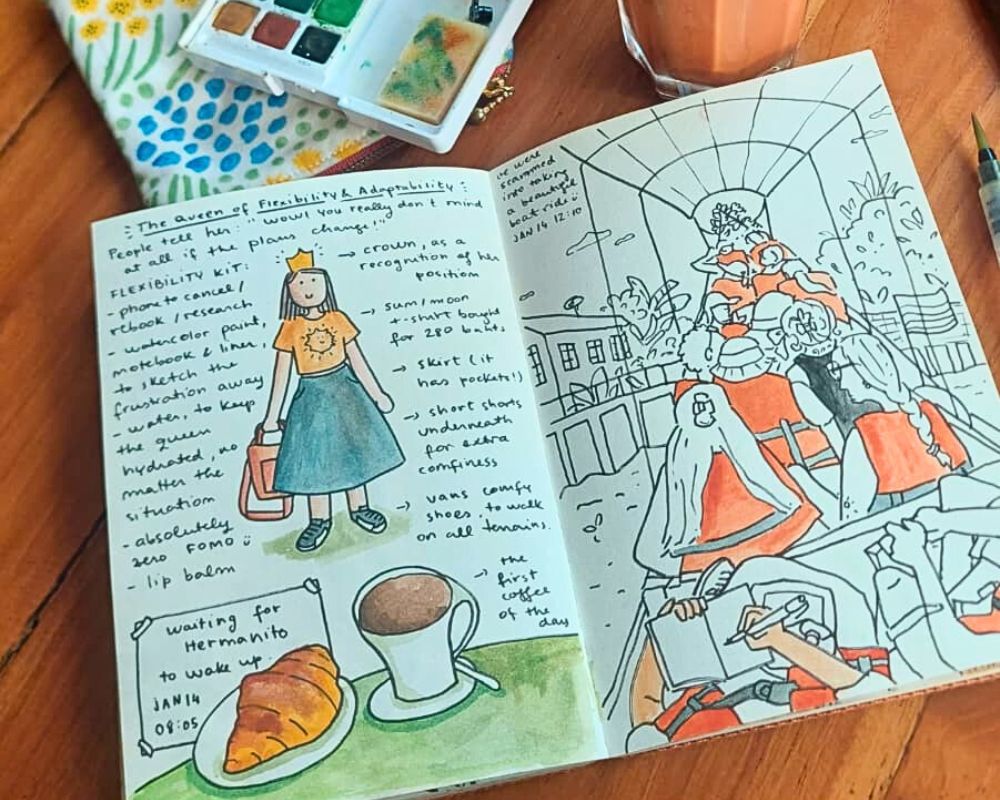 The Queen of Flexibility & Adaptability :
People tell her: "wow! you really don't mind
at all if the plans change!"
FLEXIBILITY KIT:
- phone to cancel /
rebook / research
- watercolor paint,
notebook & liner,
to sketch the
frustration away
- water, to keep
the queen
hydrated, no
matter the
situation
- absolutely
zero FOMO
- lip balm
crown, as a
recognition of her
position
sum/moon
t-shirt bought
for 280 bahts
skirt (it
has pockets!)
short shorts
underneath
for extra
comfiness
vans comfy
shoes, to walk
on all terrains.
the
first
coffee
of the
day
waiting for
Hermanito
to wake up.
JAN 14
08:05
we were
scammed
into taking
a beautiful
boat ride
JAN 14 12:10